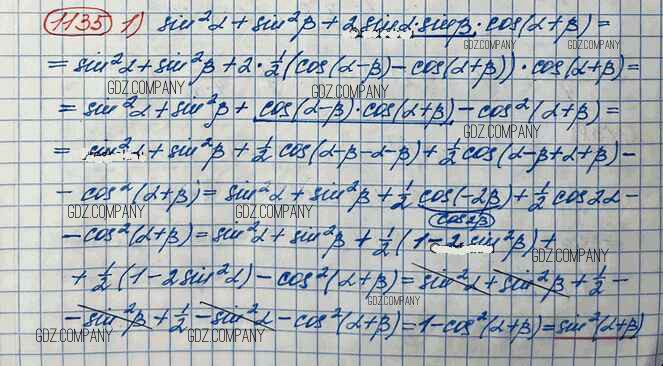 1135 1) sin²α + sin²β + 2 sinα · sinβ · cos(α+β) =
GDZ.COMPANY GDZ.COMPANY
= sin²α + sin²β + 2 · ½(cos(α-β) - cos(α+β)) · cos(α+β) =
GDZ.COMPANY GDZ.COMPANY
= sin²α + sin²β + cos(α-β) · cos(α+β) - cos²(α+β) =
GDZ.COMPANY GDZ.COMPANY
= sin²α + sin²β + ½ cos(α-β-α-β) + ½ cos(α-β+α+β) -
- cos²(α+β) = sin²α + sin²β + ½ cos(-2β) + ½ cos2α -
GDZ.COMPANY GDZ.COMPANY GDZ.COMPANY
cos2β
- cos²(α+β) = sin²α + sin²β + ½(1 - 2 sin²β) +
GDZ.COMPANY
+ ½(1 - 2sin²α) - cos²(α+β) = sin²α + sin²β + ½ -
GDZ.COMPANY GDZ.COMPANY
- sin²β + ½ - sin²α - cos²(α+β) = 1 - cos²(α+β) = sin²(α+β)
GDZ.COMPANY GDZ.COMPANY GDZ.COMPANY